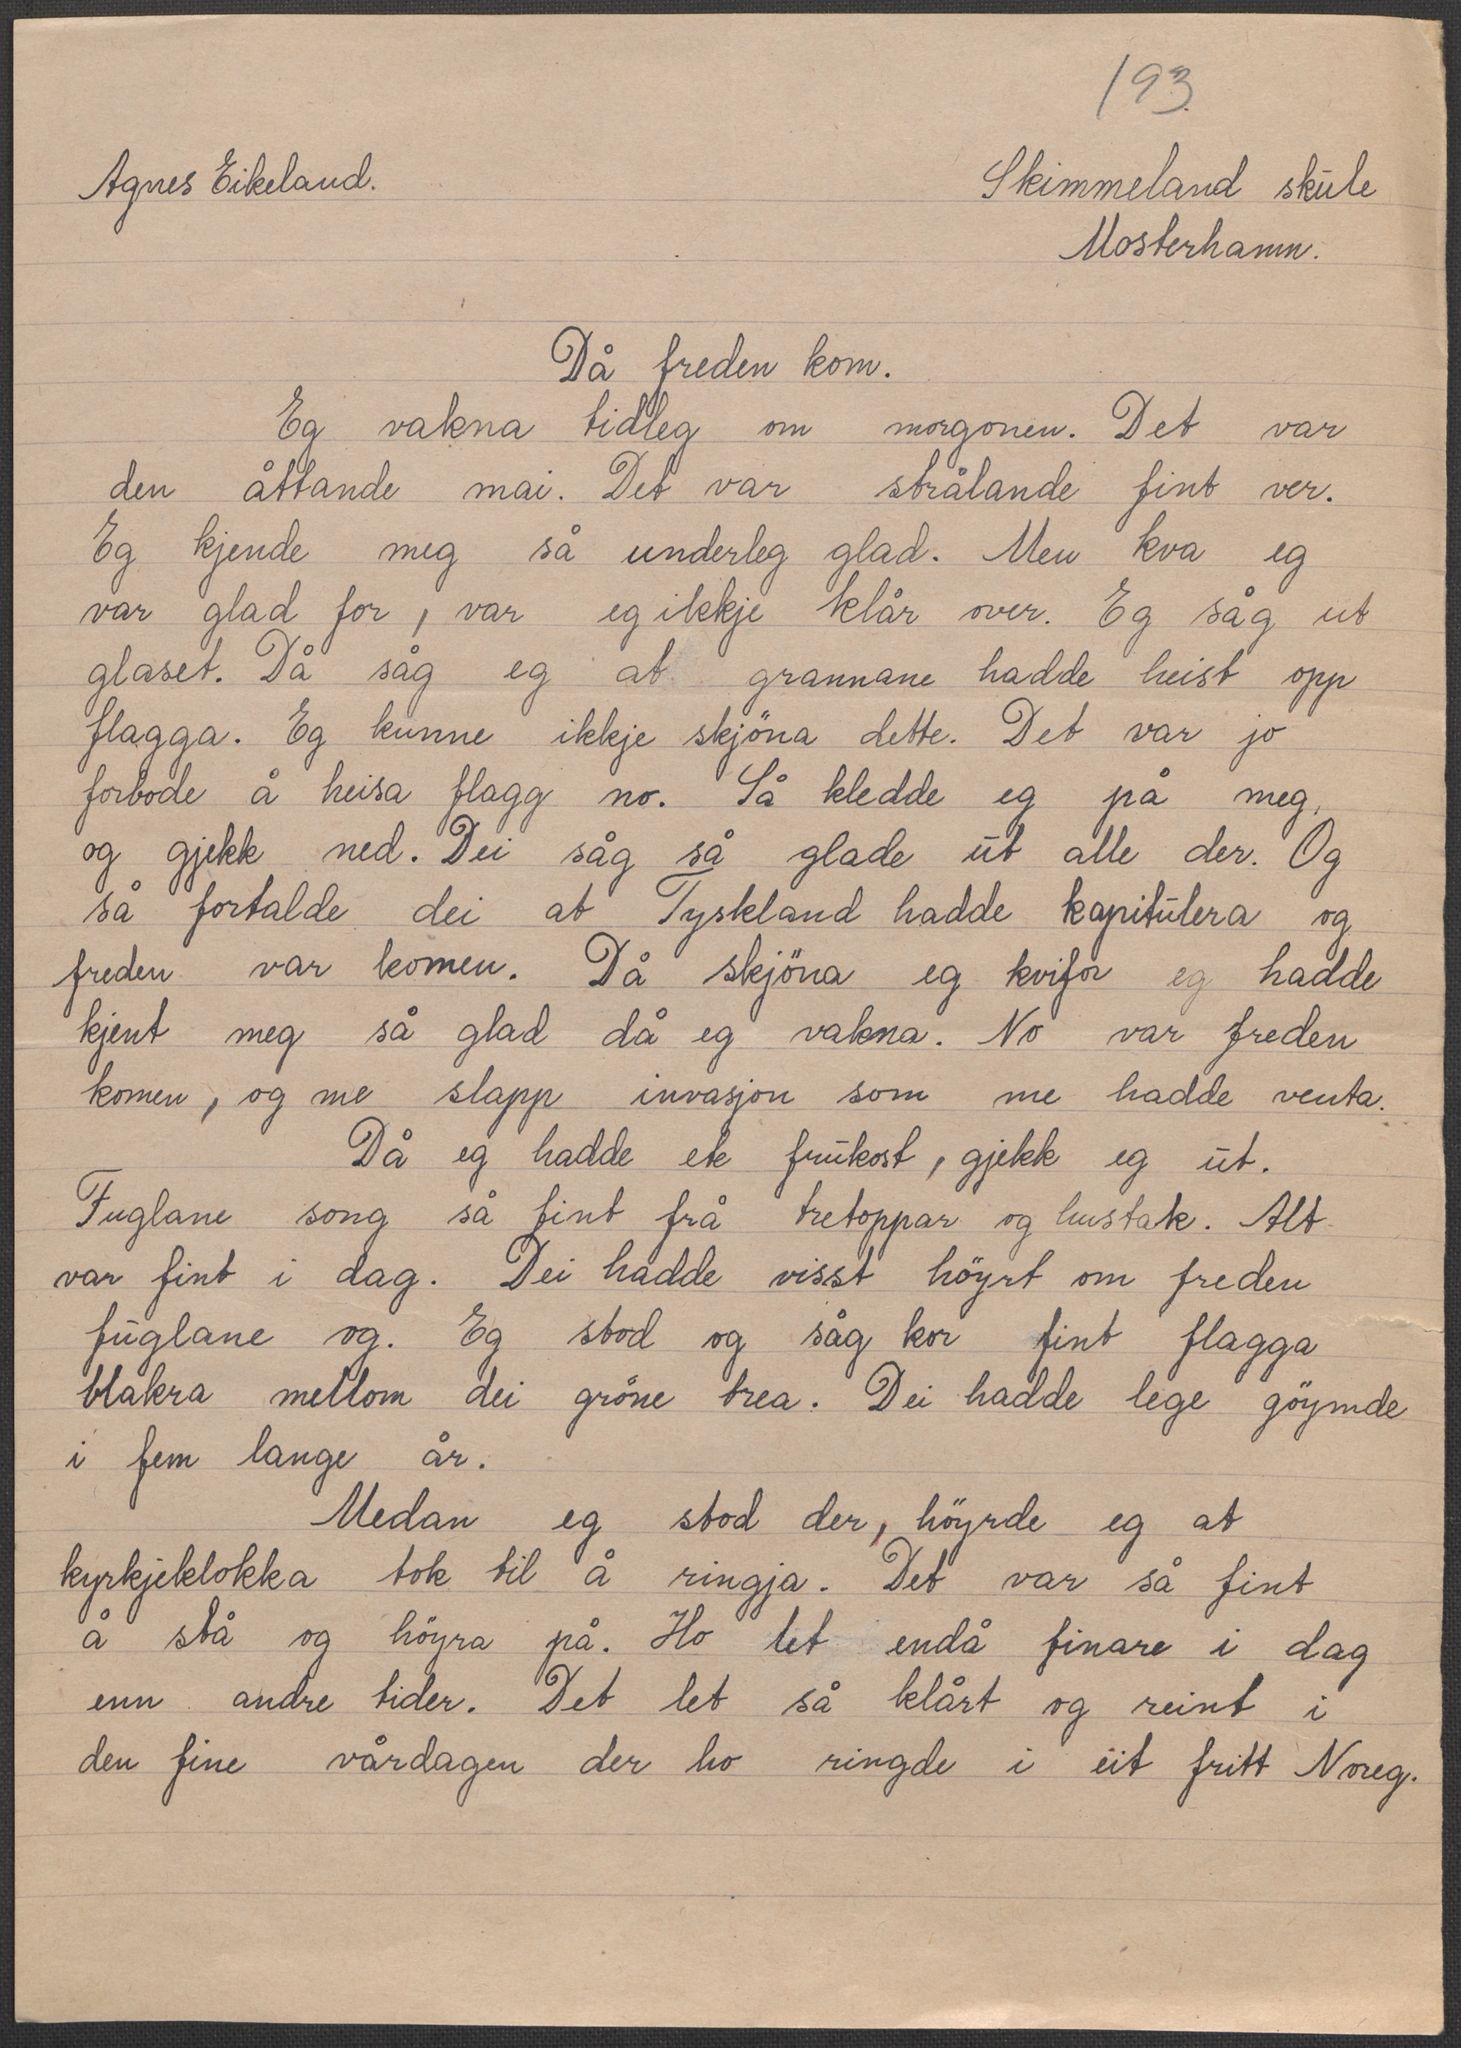 193
Agnes Eikeland.
Skimmeland skule
Mosterhamn.
Då freden kom.
Eg vakna tidleg om morgonen. Det var
den åttande mai. Det var strålande fint ver.
Eg kjende meg så underleg glad. Men kva eg
var glad for, var eg ikkje klår over. Eg såg ut
glaset. Då såg eg at grannane hadde heist opp
flagga. Eg kunne ikkje skjöna dette. Det var jo
forbode å heisa flagg no. Så kledde eg på meg,
og gjekk ned. Dei såg så glade ut alle der. Og
så fortalde dei at Tyskland hadde kapitulera og
freden var komen. Då skjöna eg kvifor eg hadde
kjent meg så glad då eg vakna. No var freden
komen, og me slapp invasjon som me hadde venta.
Då eg hadde ete frukost, gjekk eg ut.
Fuglane song så fint frå tretoppar og hustak. Alt
var fint i dag. Dei hadde visst höyrt om freden
fuglane og. Eg stod og såg kor fint flagga
blakra mellom dei gröne trea. Dei hadde lege göymde
i fem lange år.
Medan eg stod der, höyrde eg at
kyrkjeklokka tok til å ringja. Det var så fint
å stå og höyra på. Ho let endå finare i dag
enn andre tider. Det let så klårt og reint i
den fine vårdagen der ho ringde i eit fritt Noreg.